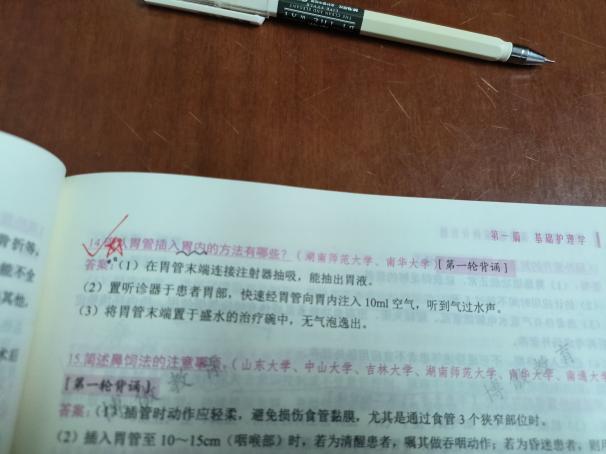 第一篇 基础护理学
14.确认胃管插入胃内的方法有哪些?(湖南师范大学、南华大学)[第一轮背诵]
答案:(1)在胃管末端连接注射器抽吸,能抽出胃液。
(2)置听诊器于患者胃部,快速经胃管向胃内注入10ml空气,听到气过水声。
(3)将胃管末端置于盛水的治疗碗中,无气泡逸出。
15.简述鼻饲法的注意事项。(山东大学、中山大学、吉林大学、湖南师范大学、南华大学、南通大学
[第一轮背诵]
答案:(1)插管时动作应轻柔,避免损伤食管黏膜,尤其是通过食管3个狭窄部位时。
(2)插入胃管至10~15cm(咽喉部)时,若为清醒患者,嘱其做吞咽动作;若为昏迷患者,则
背折等,
能不全
其他.